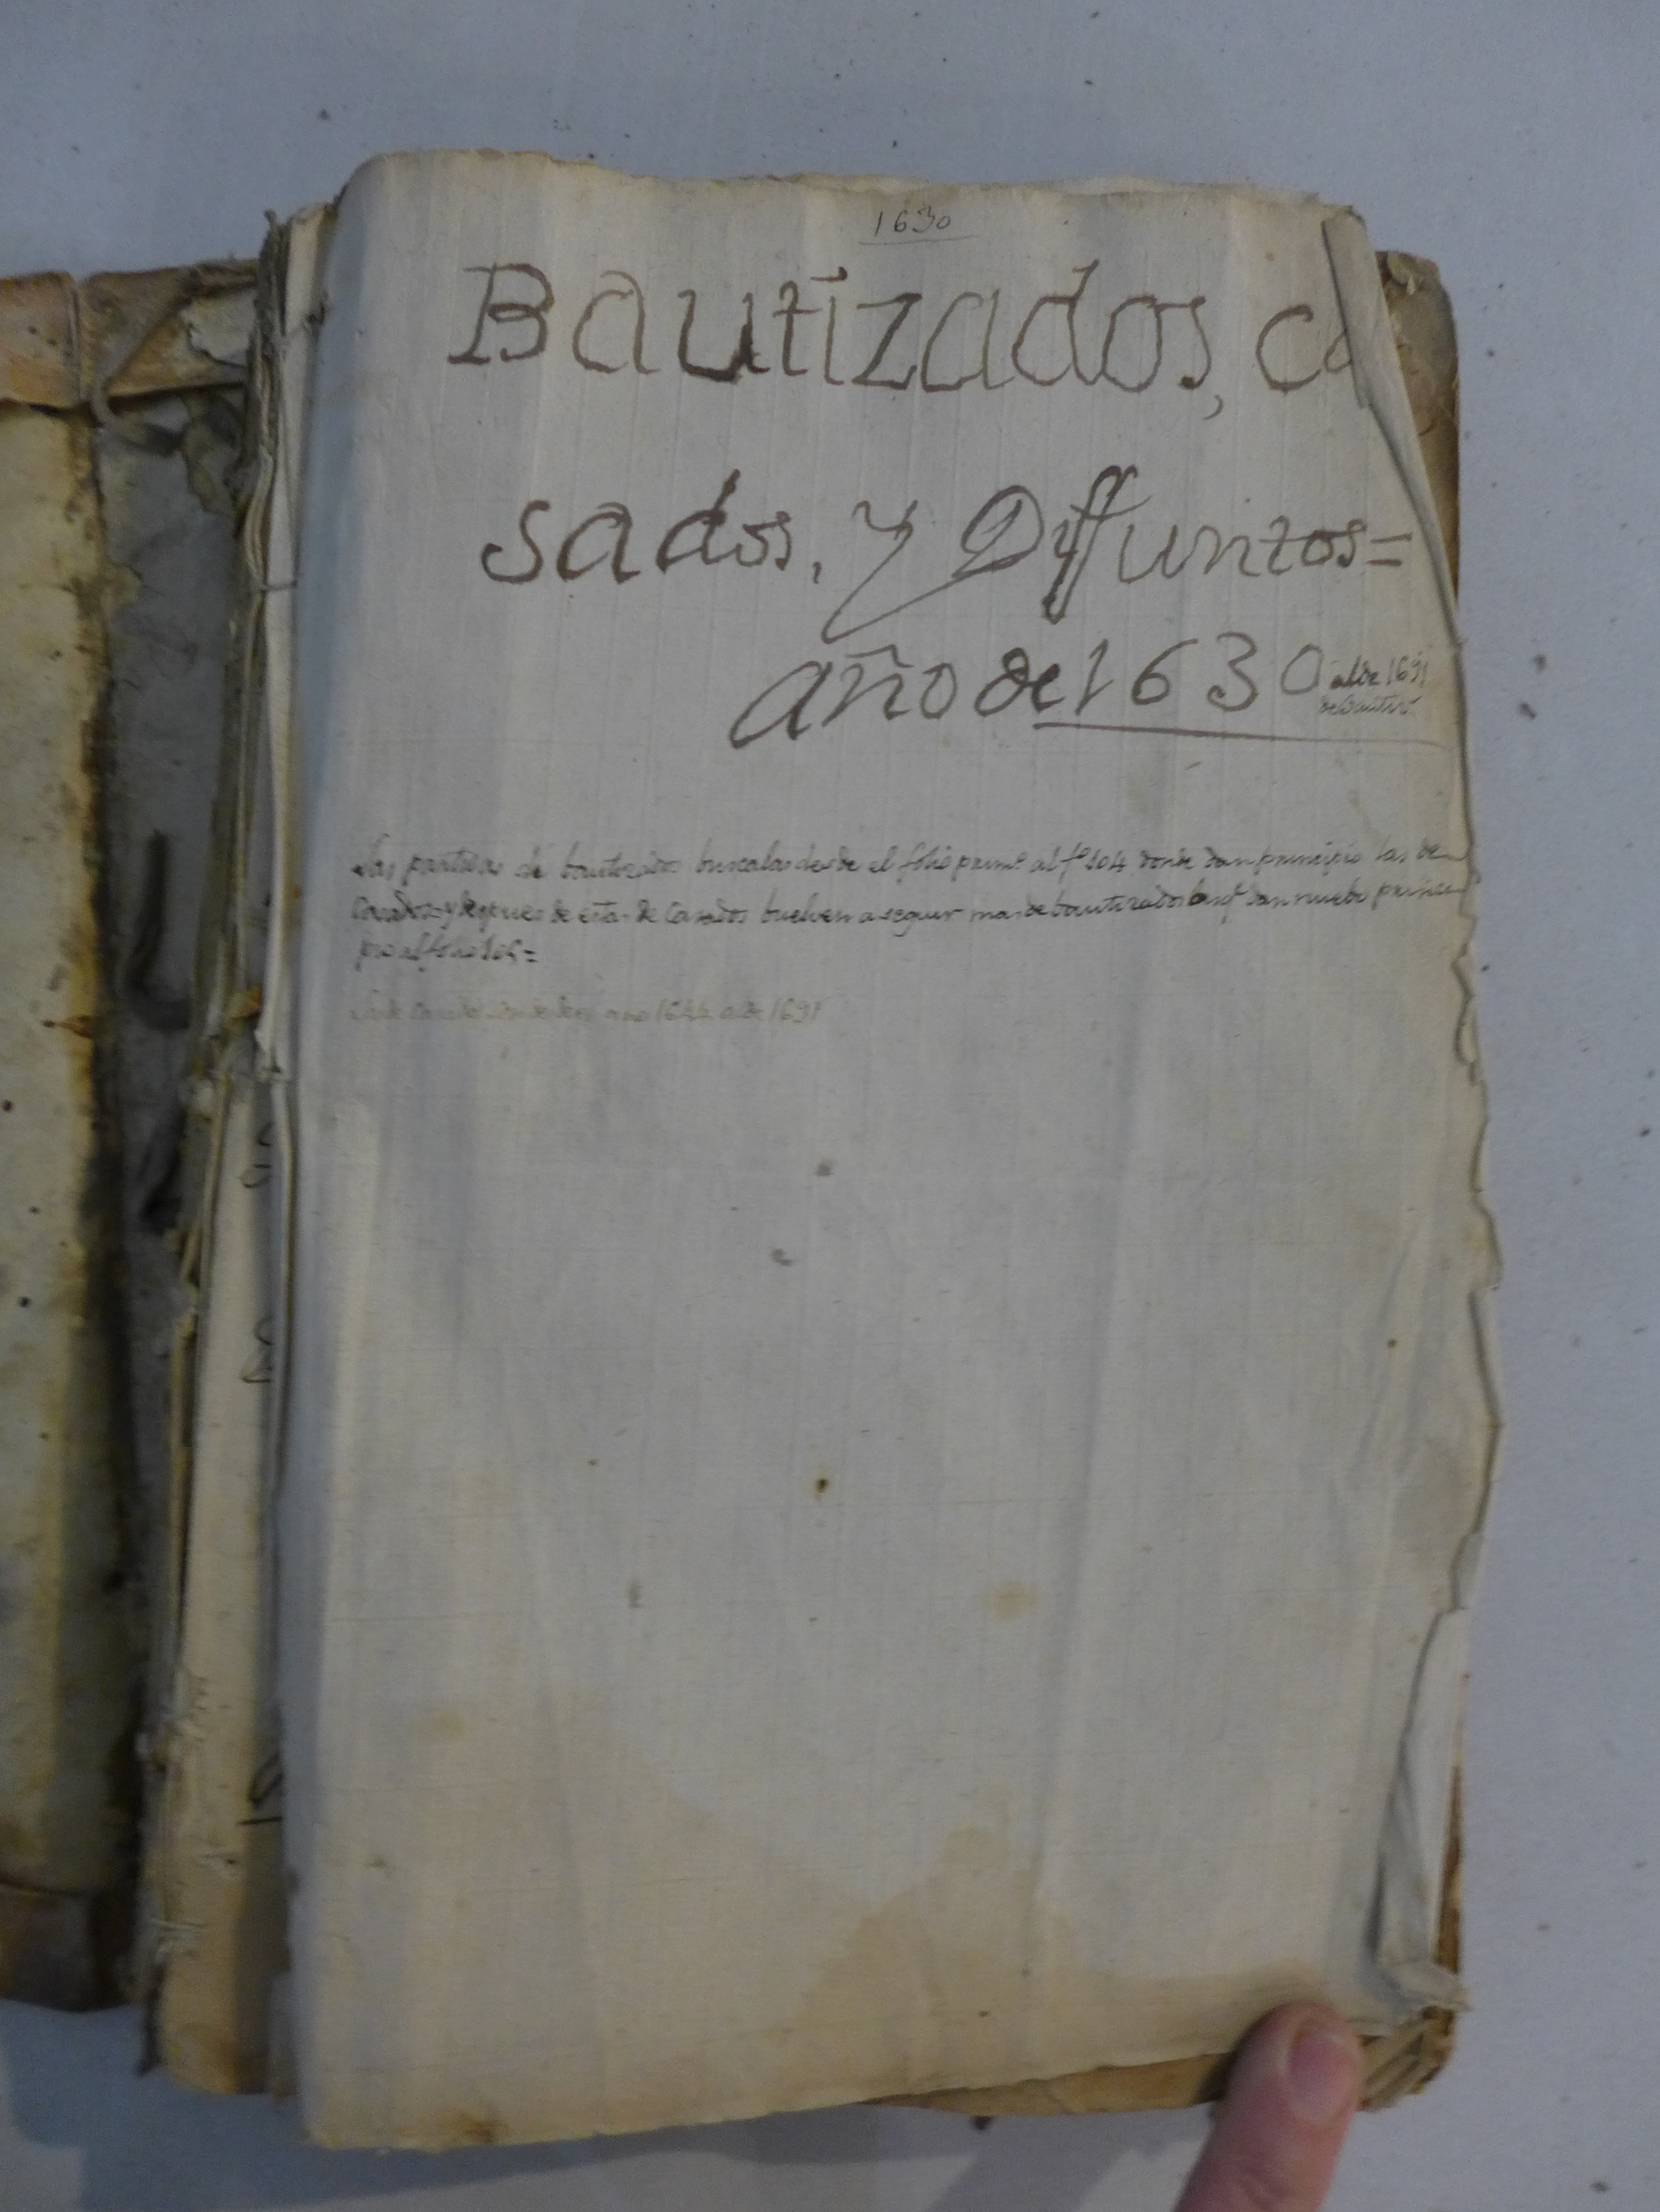 1630
Bautizados, ca
sados, y Diffuntos=
año de 1630 al de 1691
de bautis
Las partidas de bautizados buscalas desde el folio prim.º al fº 104 donde dan principio las de
Casados= y despues de estas de Casados buelven a seguir mas de bautizados las q dan nuebo princi
pio al folio
de Casados año 1644 al de 1691